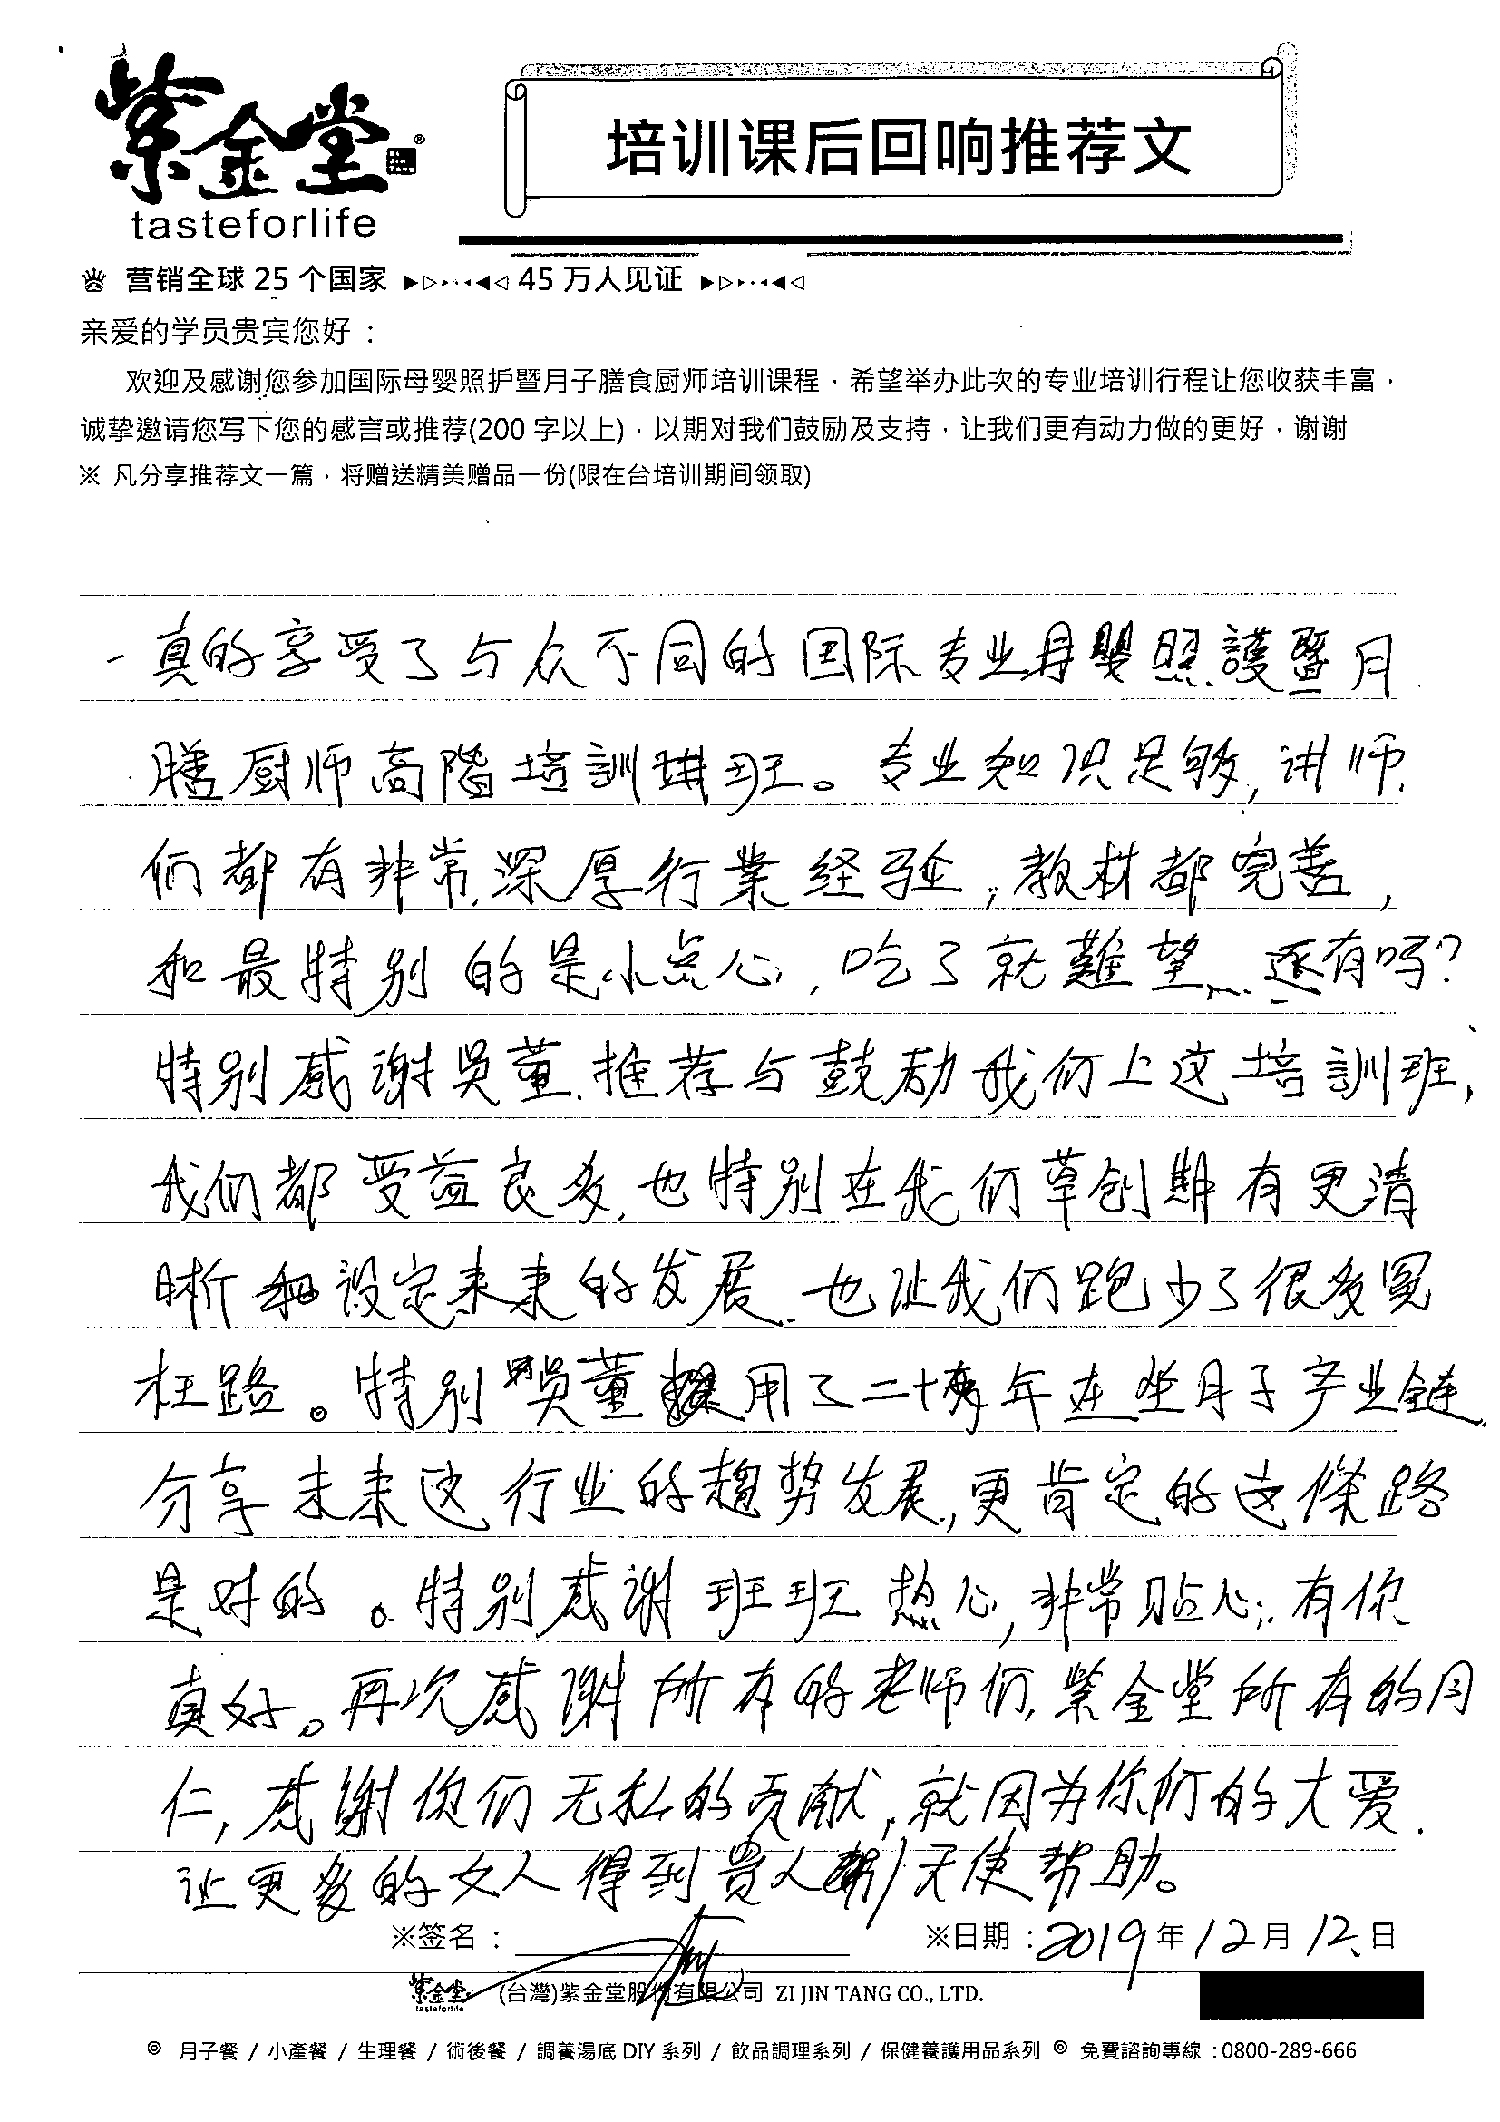 紫金堂®
tasteforlife
培训课后回响推荐文
营销全球 25 个国家 ▶▷▸··◂◀◁ 45 万人见证 ▶▷▸··◂◀◁
亲爱的学员贵宾您好：
欢迎及感谢您参加国际母婴照护暨月子膳食厨师培训课程，希望举办此次的专业培训行程让您收获丰富，
诚挚邀请您写下您的感言或推荐(200 字以上)，以期对我们鼓励及支持，让我们更有动力做的更好，谢谢
※ 凡分享推荐文一篇，将赠送精美赠品一份(限在台培训期间领取)
真的享受了与众不同的国际专业母婴照護暨月
膳厨师高階培訓班。专业知识足够，讲师
们都有非常深厚行業经验，教材都完善，
和最特别的是小点心，吃了就難望……还有吗？
特别感谢吳董推荐与鼓励我们上这培訓班，
我们都受益良多，也特别在我们草创期有更清
晰和设定未来的发展，也让我们跑少了很多冤
枉路。特别吳董用了二十年在坐月子产业链
分享未来这行业的趋势发展，更肯定的这條路
是对的。特别感谢班班热心，非常贴心，有你
真好。再次感谢所有的老师们，紫金堂所有的同
仁，感谢你们无私的贡献，就因为你们的大爱，
让更多的女人得到贵人/天使帮助。
※签名：
※日期：2019年12月12日
紫金堂 (台灣)紫金堂股份有限公司 ZI JIN TANG CO., LTD.
tasteforlife
◎ 月子餐 / 小產餐 / 生理餐 / 術後餐 / 調養湯底 DIY 系列 / 飲品調理系列 / 保健養護用品系列 ◎ 免費諮詢專線：0800-289-666